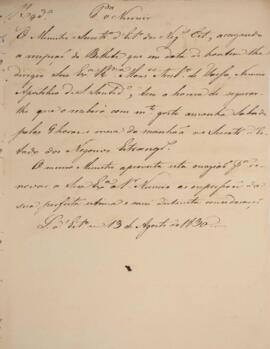 O Ministro Secret.º d'Est.º dos Neg.ºs Est. accusando
a recepção do Bilhete que em data de hontem lhe
dirigio Sua Ex.ª R.ma Mons.
Apostolico de Sua Sant.de, tem a honra de segurar-lhe
que o receberá com m.to gosto amanhã Sabado
pelas 9 horas e meia da manhãa na Secret.ª de
Estado dos Negocios Estrang.os
O mesmo Ministro aproveita esta occazião p.ª re-
novar a Sua Ex.ª o S.r Nuncio as expressões da
sua perfeita estima e mui distincta consideração.
13 de Agosto de 1830